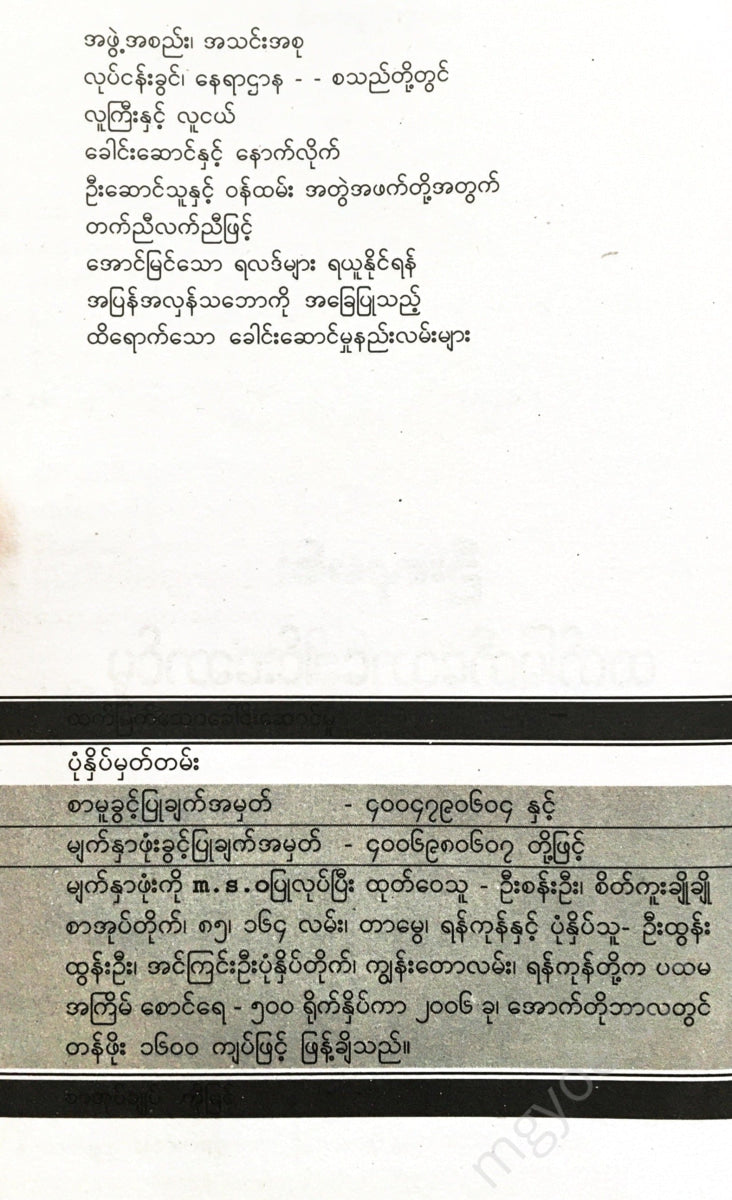 အဖွဲ့အစည်း၊ အသင်းအစု
လုပ်ငန်းခွင်၊ နေရာဌာန - - စသည်တို့တွင်
လူကြီးနှင့် လူငယ်
ခေါင်းဆောင်နှင့် နောက်လိုက်
ဦးဆောင်သူနှင့် ဝန်ထမ်း အတွဲအဖက်တို့အတွက်
တက်ညီလက်ညီဖြင့်
အောင်မြင်သော ရလဒ်များ ရယူနိုင်ရန်
အပြန်အလှန်သဘောကို အခြေပြုသည့်
ထိရောက်သော ခေါင်းဆောင်မှုနည်းလမ်းများ
ထက်မြက်သောခေါင်းဆောင်မှု
ပုံနှိပ်မှတ်တမ်း
စာမူခွင့်ပြုချက်အမှတ် - ၄၀၀၄၇၉၀၆၀၄ နှင့်
မျက်နှာဖုံးခွင့်ပြုချက်အမှတ် - ၄၀၀၆၉၈၀၆၀၇ တို့ဖြင့်
မျက်နှာဖုံးကို m.s.oပြုလုပ်ပြီး ထုတ်ဝေသူ - ဦးစန်းဦး၊ စိတ်ကူးချိုချို
စာအုပ်တိုက်၊ ၈၅၊ ၁၆၄ လမ်း၊ တာမွေ၊ ရန်ကုန်နှင့် ပုံနှိပ်သူ- ဦးထွန်း
ထွန်းဦး၊ အင်ကြင်းဦးပုံနှိပ်တိုက်၊ ကျွန်းတောလမ်း၊ ရန်ကုန်တို့က ပထမ
အကြိမ် စောင်ရေ - ၅၀၀ ရိုက်နှိပ်ကာ ၂၀၀၆ ခု၊ အောက်တိုဘာလတွင်
တန်ဖိုး ၁၆၀၀ ကျပ်ဖြင့် ဖြန့်ချိသည်။